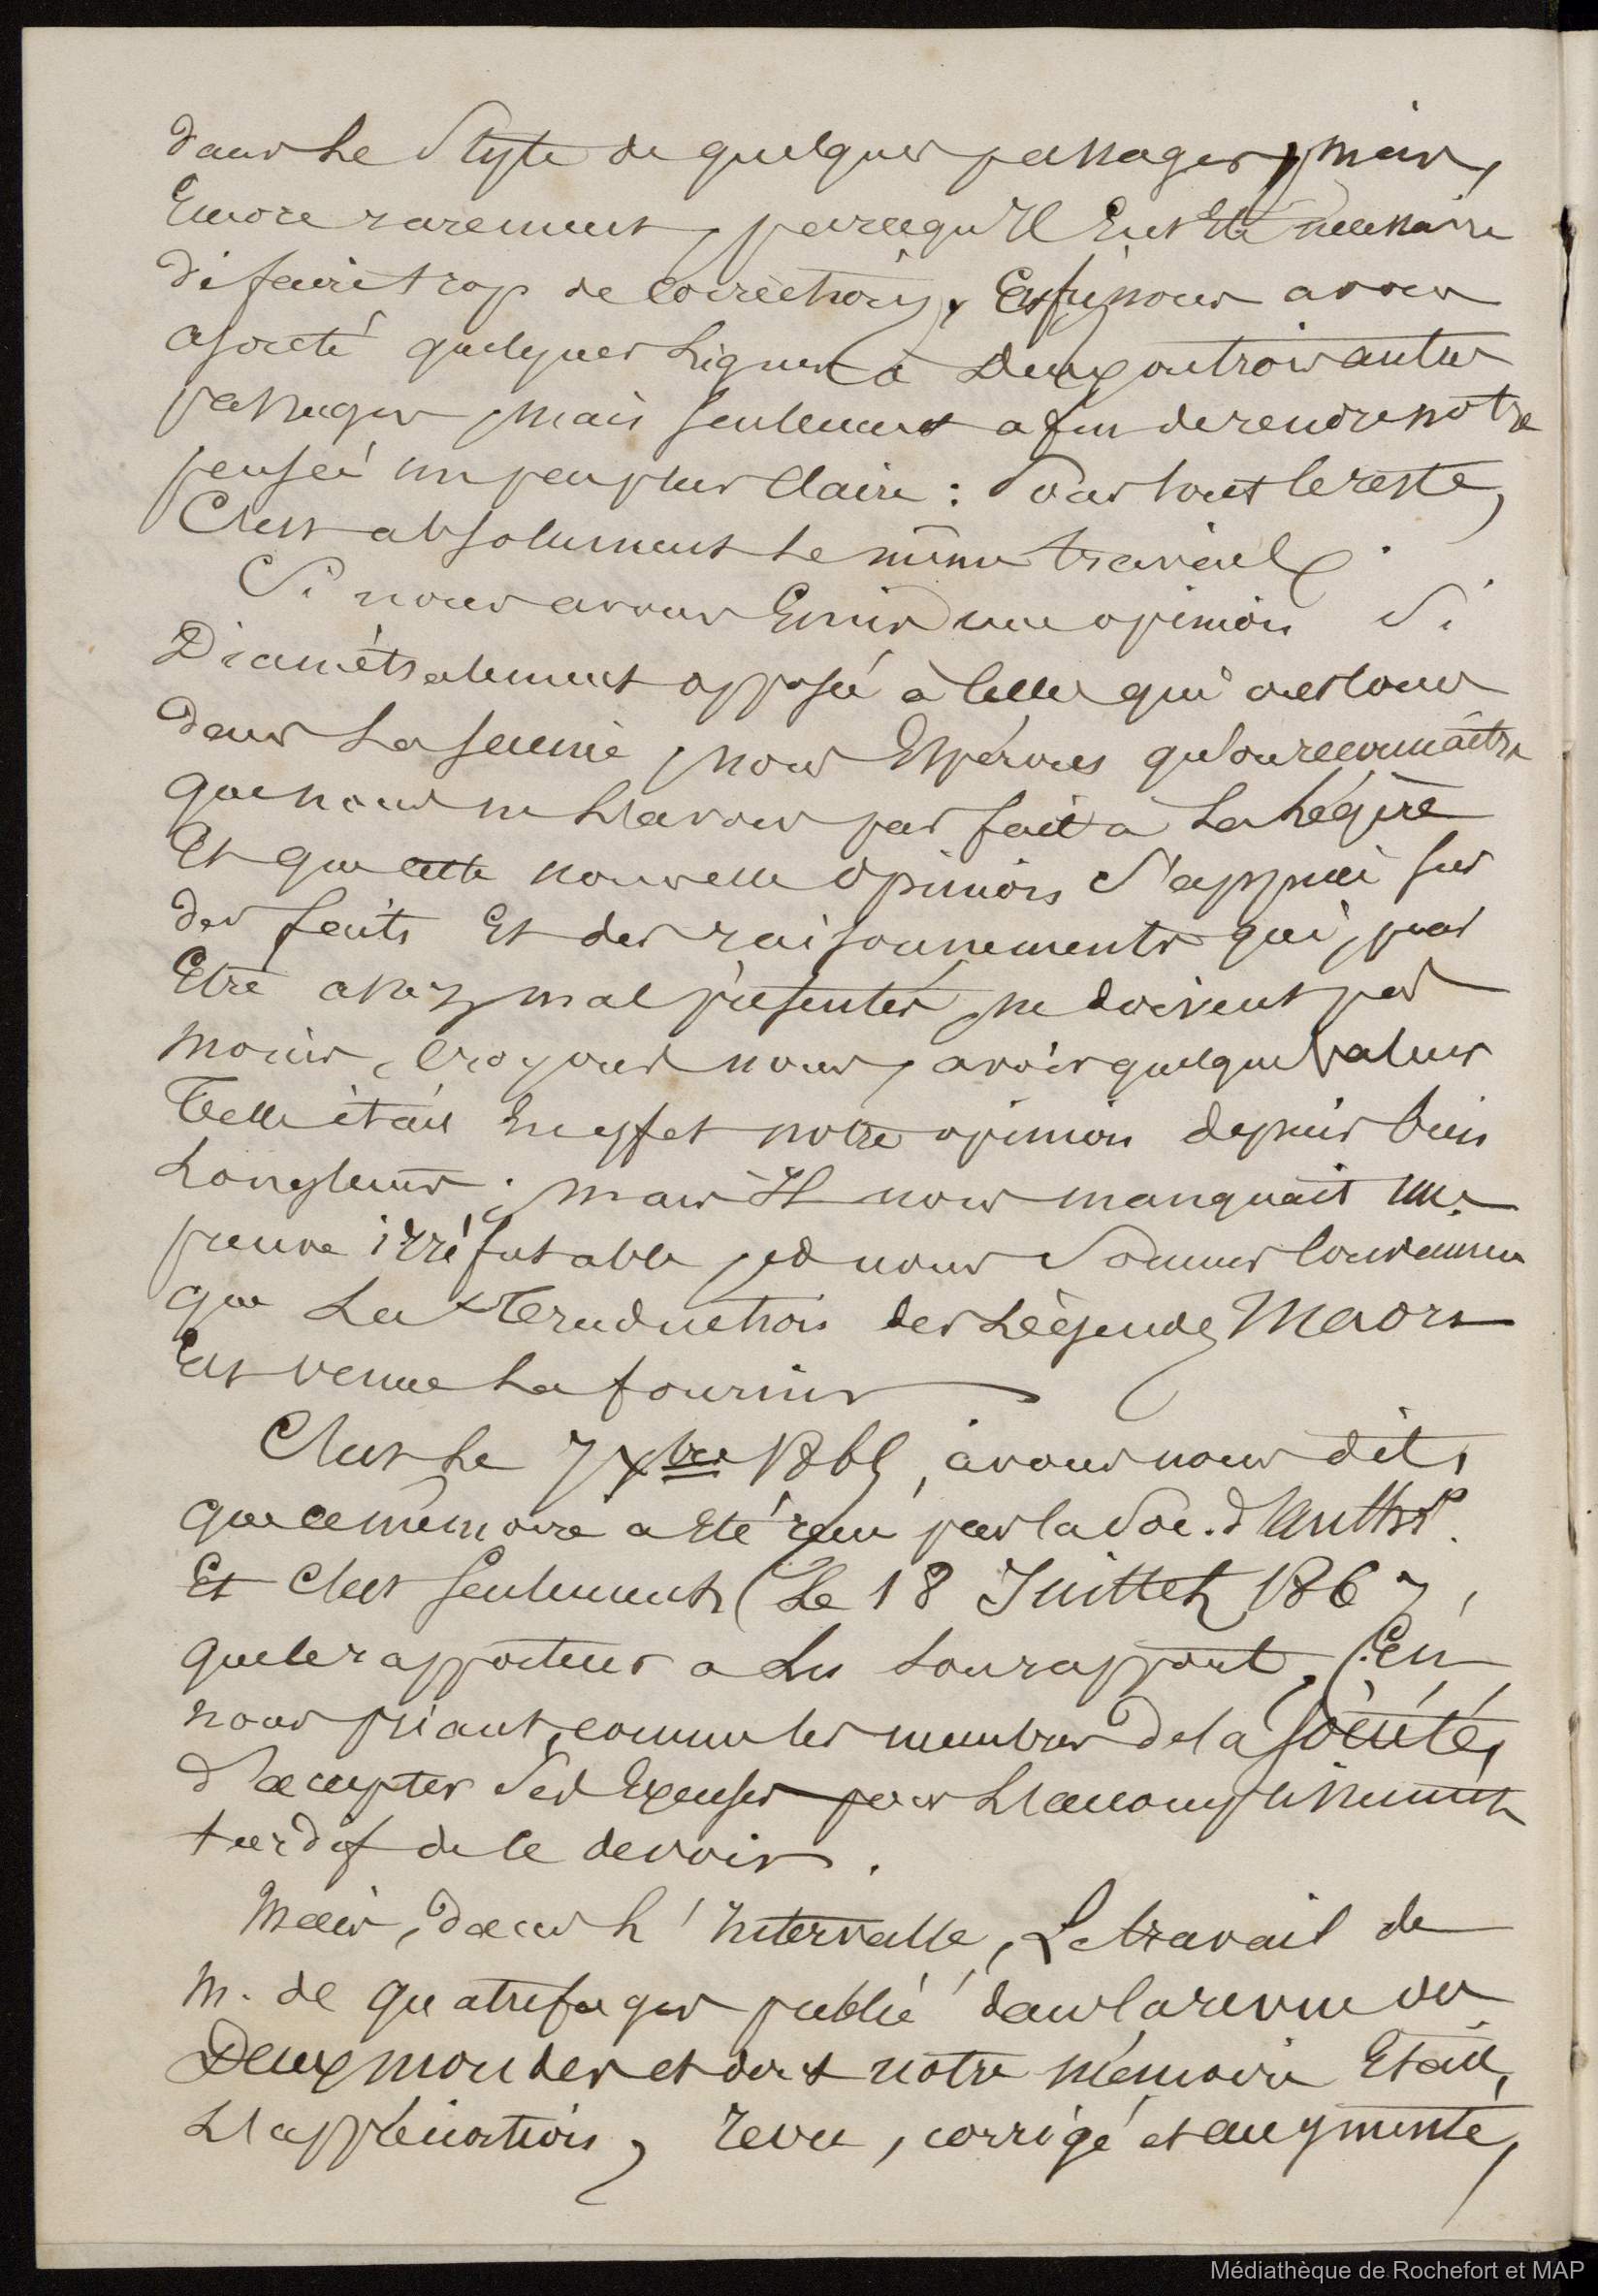 dans le style de quelques passages, mais,
Encore rarement, parcequ'Il Eut Eté nécessaire
de faire trop de corrections, Enfin nous avons
ajouté quelques lignes à Deux ou trois autres
passages, mais seulement afin de rendre notre
pensée un peu plus Claire : Pour tout le reste,
C'est absolument le même travail.
Si nous avons Emis une opinion Si
Diamétralement opposée à celle qui a cours
dans la science, nous Espérons qu'on reconnaîtra
que nous ne l'avons pas fait à la légère
Et que cette nouvelle opinion s'appuie sur
des faits Et des raisonnements qui, pour
Etre assez mal présentés, ne doivent pas
moins, croyons nous, avoir quelque valeur
Telle était En effet notre opinion depuis bien
longtems ; mais Il nous manquait une
preuve irréfutable, et nous Sommes convaincu
que la Traduction des Légendes Maori
Est venue la fournir
C'est le 7 Xbre 1865, avons nous dit,
que ce mémoire a Eté reçu par la Soc. d'Anthrp.
Et C'est seulement Le 18 Juillet 1867,
que le rapporteur a lu son rapport, En
nous priant, comme les membres de la Société,
d'accepter Ses Excuses pour l'accomplissement
tardif de ce devoir.
Mais, dans l'Intervalle, Le travail de
M. de Quatrefages publié dans la revue des
Deux mondes et dont notre mémoire Etait,
l'application, revu, corrigé et augmenté,
Médiathèque de Rochefort et MAP